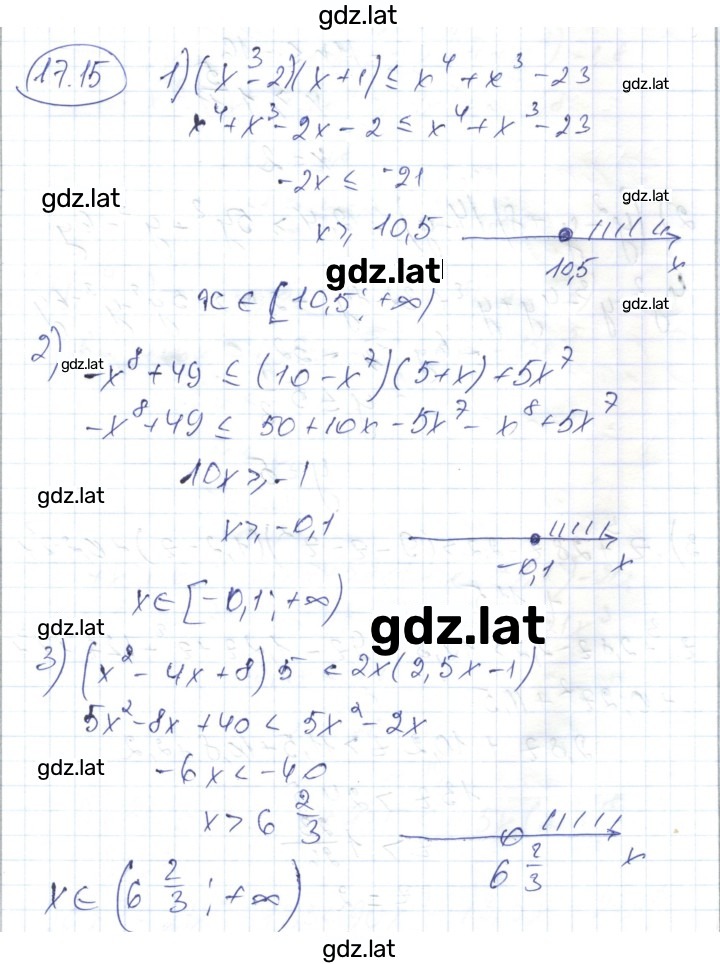 gdz.lat
17.15 1) (x³-2)(x+1) ≤ x⁴+x³-23
gdz.lat
x⁴+x³-2x-2 ≤ x⁴+x³-23
-2x ≤ -21
gdz.lat gdz.lat
x ≥ 10,5
10,5 x
gdz.lat
x ∈ [10,5; +∞) gdz.lat
2) gdz.lat -x⁸+49 ≤ (10-x⁷)(5+x)+5x⁷
-x⁸+49 ≤ 50+10x-5x⁷-x⁸+5x⁷
10x ≥ -1
gdz.lat
x ≥ -0,1
-0,1 x
x ∈ [-0,1; +∞)
gdz.lat gdz.lat
3) (x²-4x+8)5 < 2x(2,5x-1)
5x²-8x+40 < 5x²-2x
gdz.lat -6x < -40
x > 6 2/3
6 2/3 x
x ∈ (6 2/3; +∞)
gdz.lat